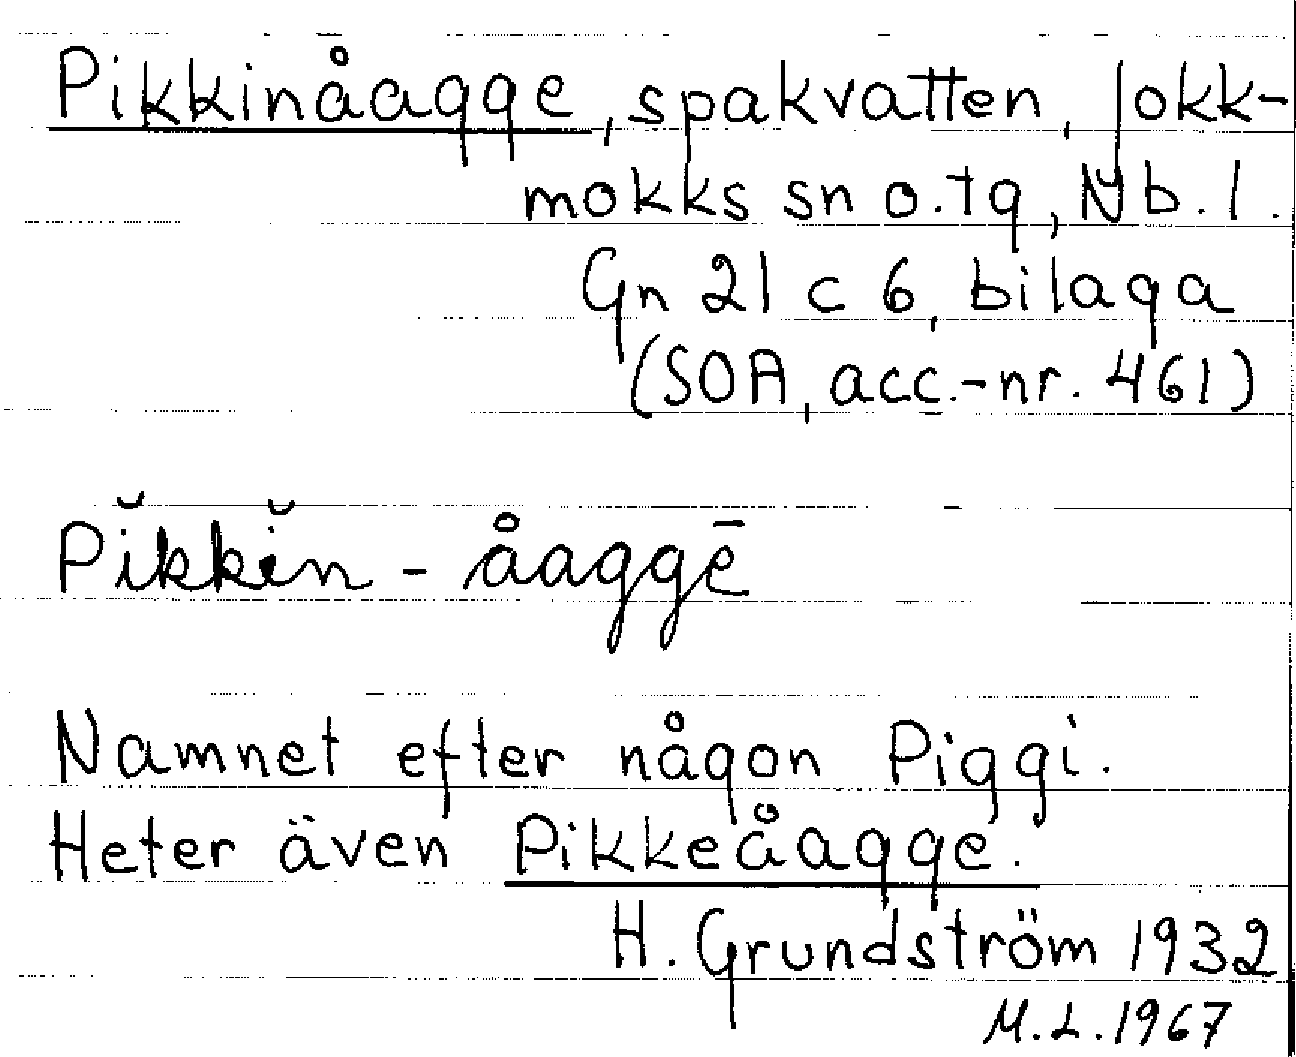 Pikkinåagge, spakvatten, Jokk-
mokks sn o. tg, Nb. l.
Gn 21 c 6, bilaga
(SOA, acc.-nr. 461)
Pĭkkĭn - åaggē
Namnet efter någon Piggi.
Heter även Pikkeåagge.
H. Grundström 1932
M.L. 1967